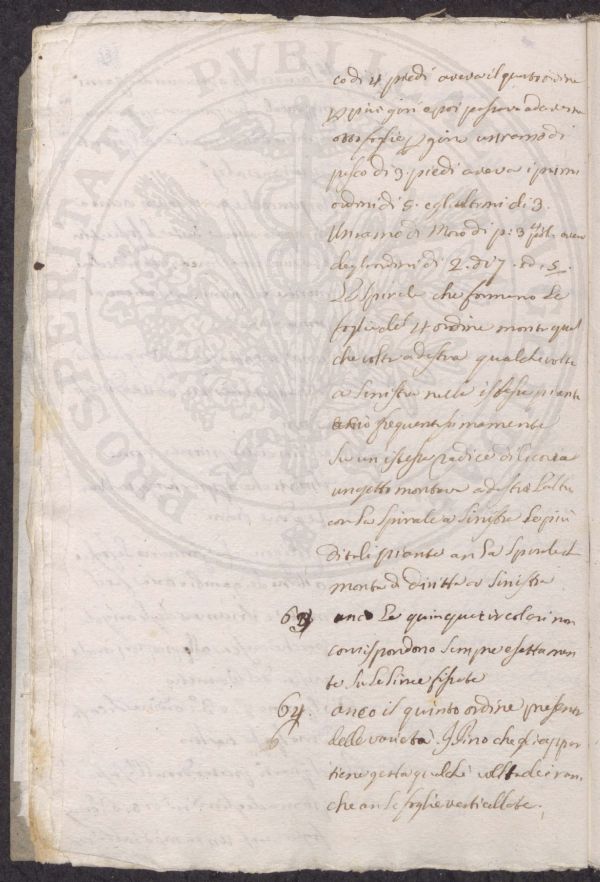 PROSPERITATI PVBLICAE
co di 4 piedi aveva il quarto ordine
piu giri e poi passava ad avere
otto foglie p gire un ramo di
pesco di 3. piedi aveva i primi
ordini di 5. e gl'ultimi di 3.
Un ramo di Moro di p: 3 aveva
degl'ordini di 2. di 7. ed. 5
Le Spirali che formano Le
foglie del 4 ordine monta qual
che volta a destra qualche volta
a Sinistra nelle istesse piante
e cio frequentissimamente
Su un istessa radice di
un getto montava a destra L'altro
con La Spirale a Sinistra Le piu
di tali piante an La Spirale
monta da diritta a Sinistra
63 anco Le quinque circolari non
corrispondono Sempre esattamen
te Su Le Linee fissate
64. anco il quinto ordine presenta
delle varietà. Il Pino che gl'appar
tiene getta qualche volta dei ram
che an Le foglie verticillate.